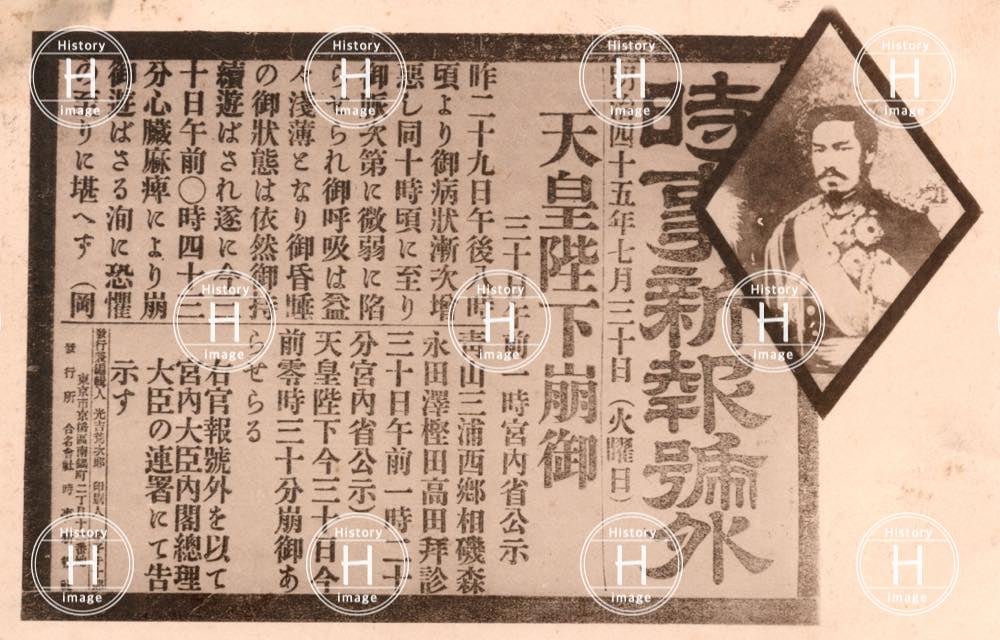 時事新報號外
明治四十五年七月三十日（火曜日）
天皇陛下崩御
三十日午前一時宮内省公示
昨二十九日午後八時
頃より御病狀漸次增
惡し同十時頃に至り
御脈次第に微弱に陷
らせられ御呼吸は益
々淺薄となり御昏睡
の御狀態は依然御持
續遊ばされ遂に今三
十日午前〇時四十三
分心臟麻痺により崩
御遊ばさる洵に恐懼
の至りに堪へず（岡
青山三浦西鄕相磯森
永田澤樫田高田拜診
三十日午前一時二十
分宮内省公示）
天皇陛下今三十日午
前零時三十分崩御あ
らせらる
右官報號外を以て
宮内大臣内閣總理
大臣の連署にて告
示す
發行兼編輯人 印刷人
東京市京橋區南鍋町二丁目十二番地
發行所 合名會社 時事新報社
History
H
image